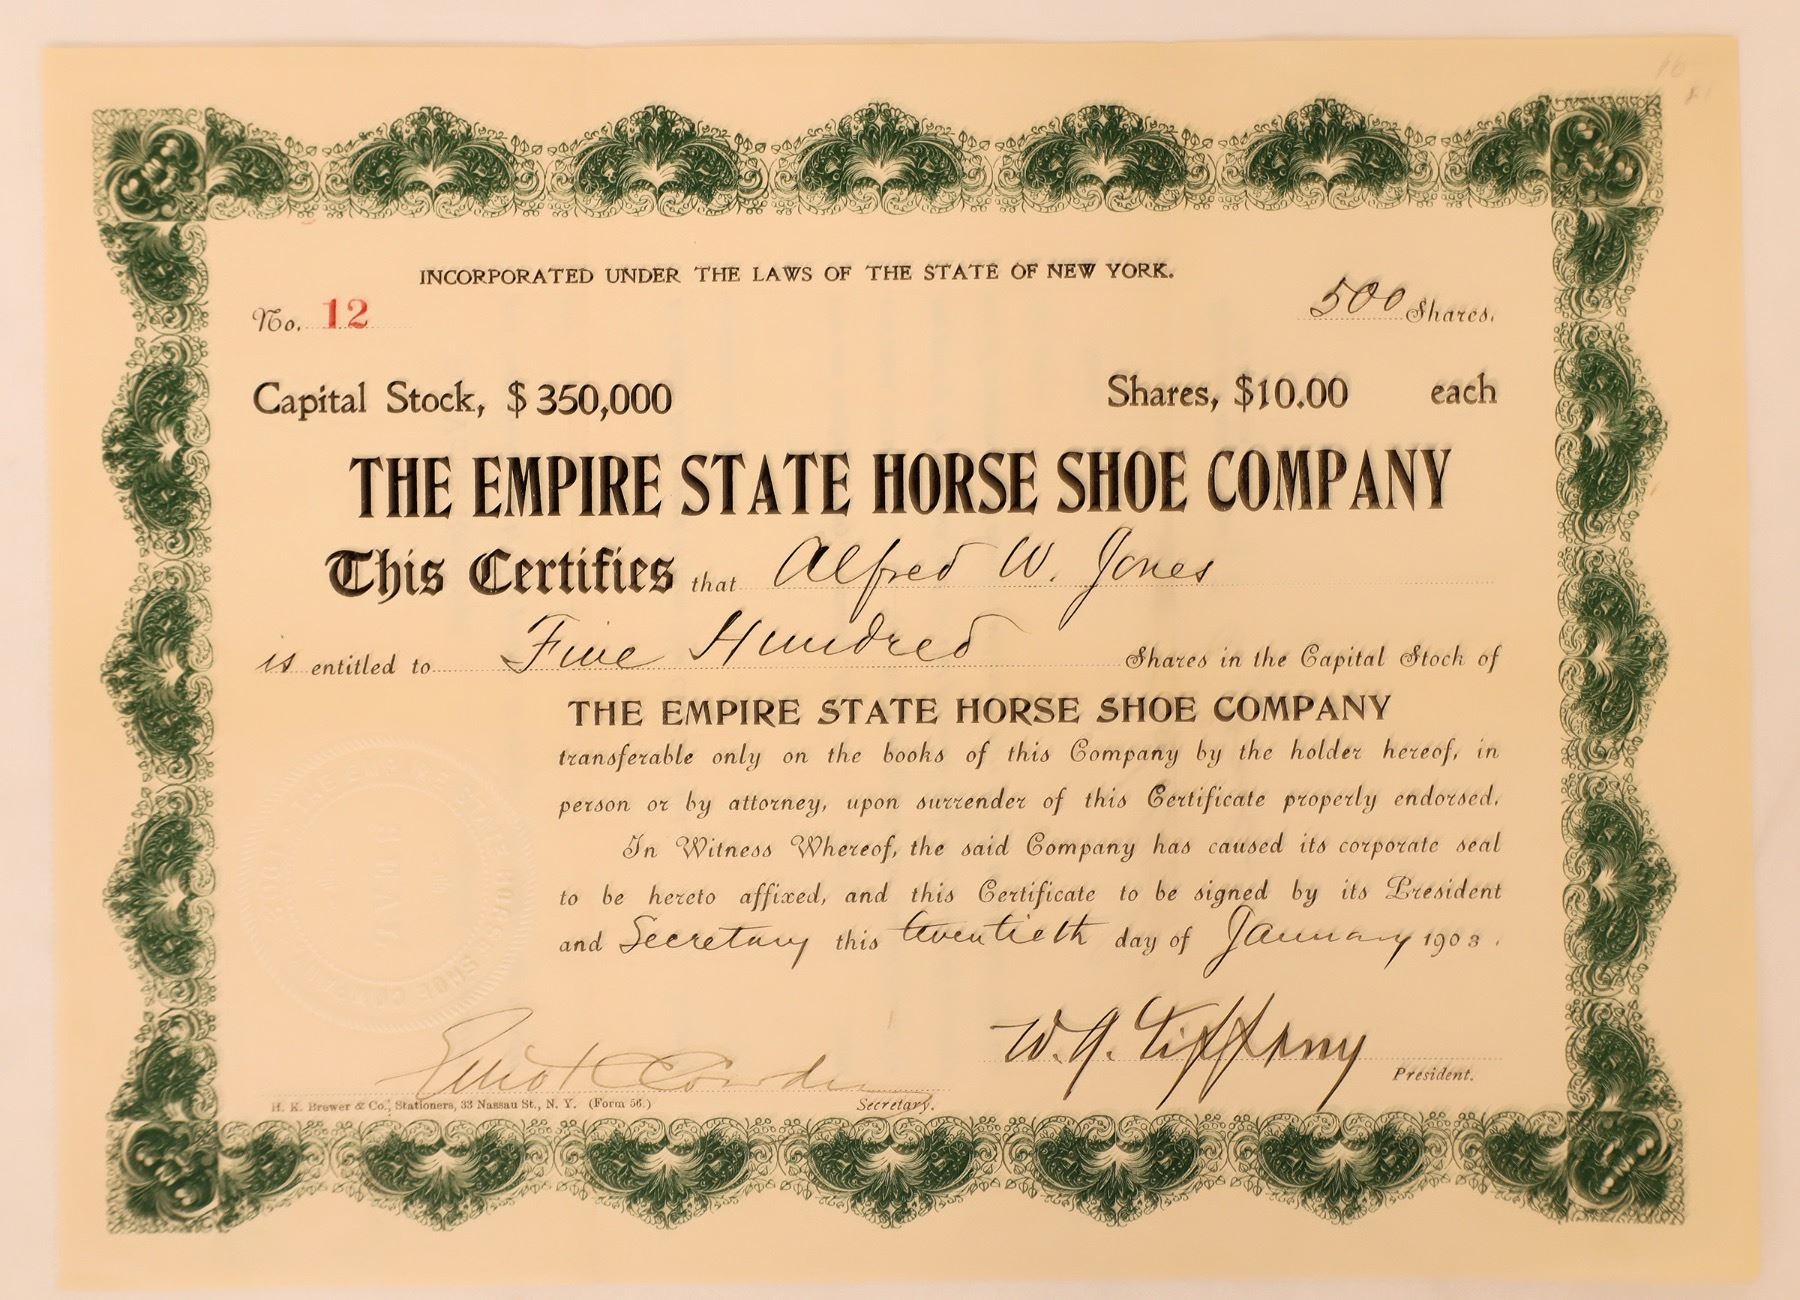 INCORPORATED UNDER THE LAWS OF THE STATE OF NEW YORK.
No. 12
500 Shares.
Capital Stock, $350,000 Shares, $10.00 each
THE EMPIRE STATE HORSE SHOE COMPANY
This Certifies that Alfred W. Jones
is entitled to Five Hundred Shares in the Capital Stock of
THE EMPIRE STATE HORSE SHOE COMPANY
transferable only on the books of this Company by the holder hereof, in
person or by attorney, upon surrender of this Certificate properly endorsed.
In Witness Whereof, the said Company has caused its corporate seal
to be hereto affixed, and this Certificate to be signed by its President
and Secretary this twentieth day of January 1903.
THE EMPIRE STATE HORSE SHOE
SEAL
W. J. Tiffany
President.
Secretary.
H. K. Brewer & Co., Stationers, 33 Nassau St., N. Y. (Form 56.)